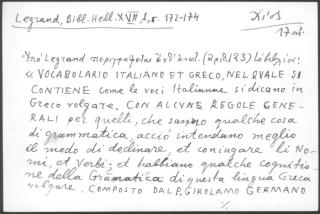 Legrand, Bibl. Hell. XVII, 1, σ. 172-174
Χίος
17 αι.
Ὑπό Legrand περιγράφεται ἐνθ' ἀνωτ. (ἀριθ. 123)
« VOCABOLARIO ITALIANO ET GRECO, NEL QUALE SI
CONTIENE come le voci Italiane, si dicano in
Greco volgare. CON ALCVNE REGOLE GENE-
RALI per quelli, che sanno qualche cosa
di grammatica, acciò intendano meglio
il modo di declinare, et coniugare li No-
mi, et Verbi; et habbiano qualche cognitio-
ne della Grammatica di questa lingua Greca
volgare. COMPOSTO DAL P. GIROLAMO GERMANO